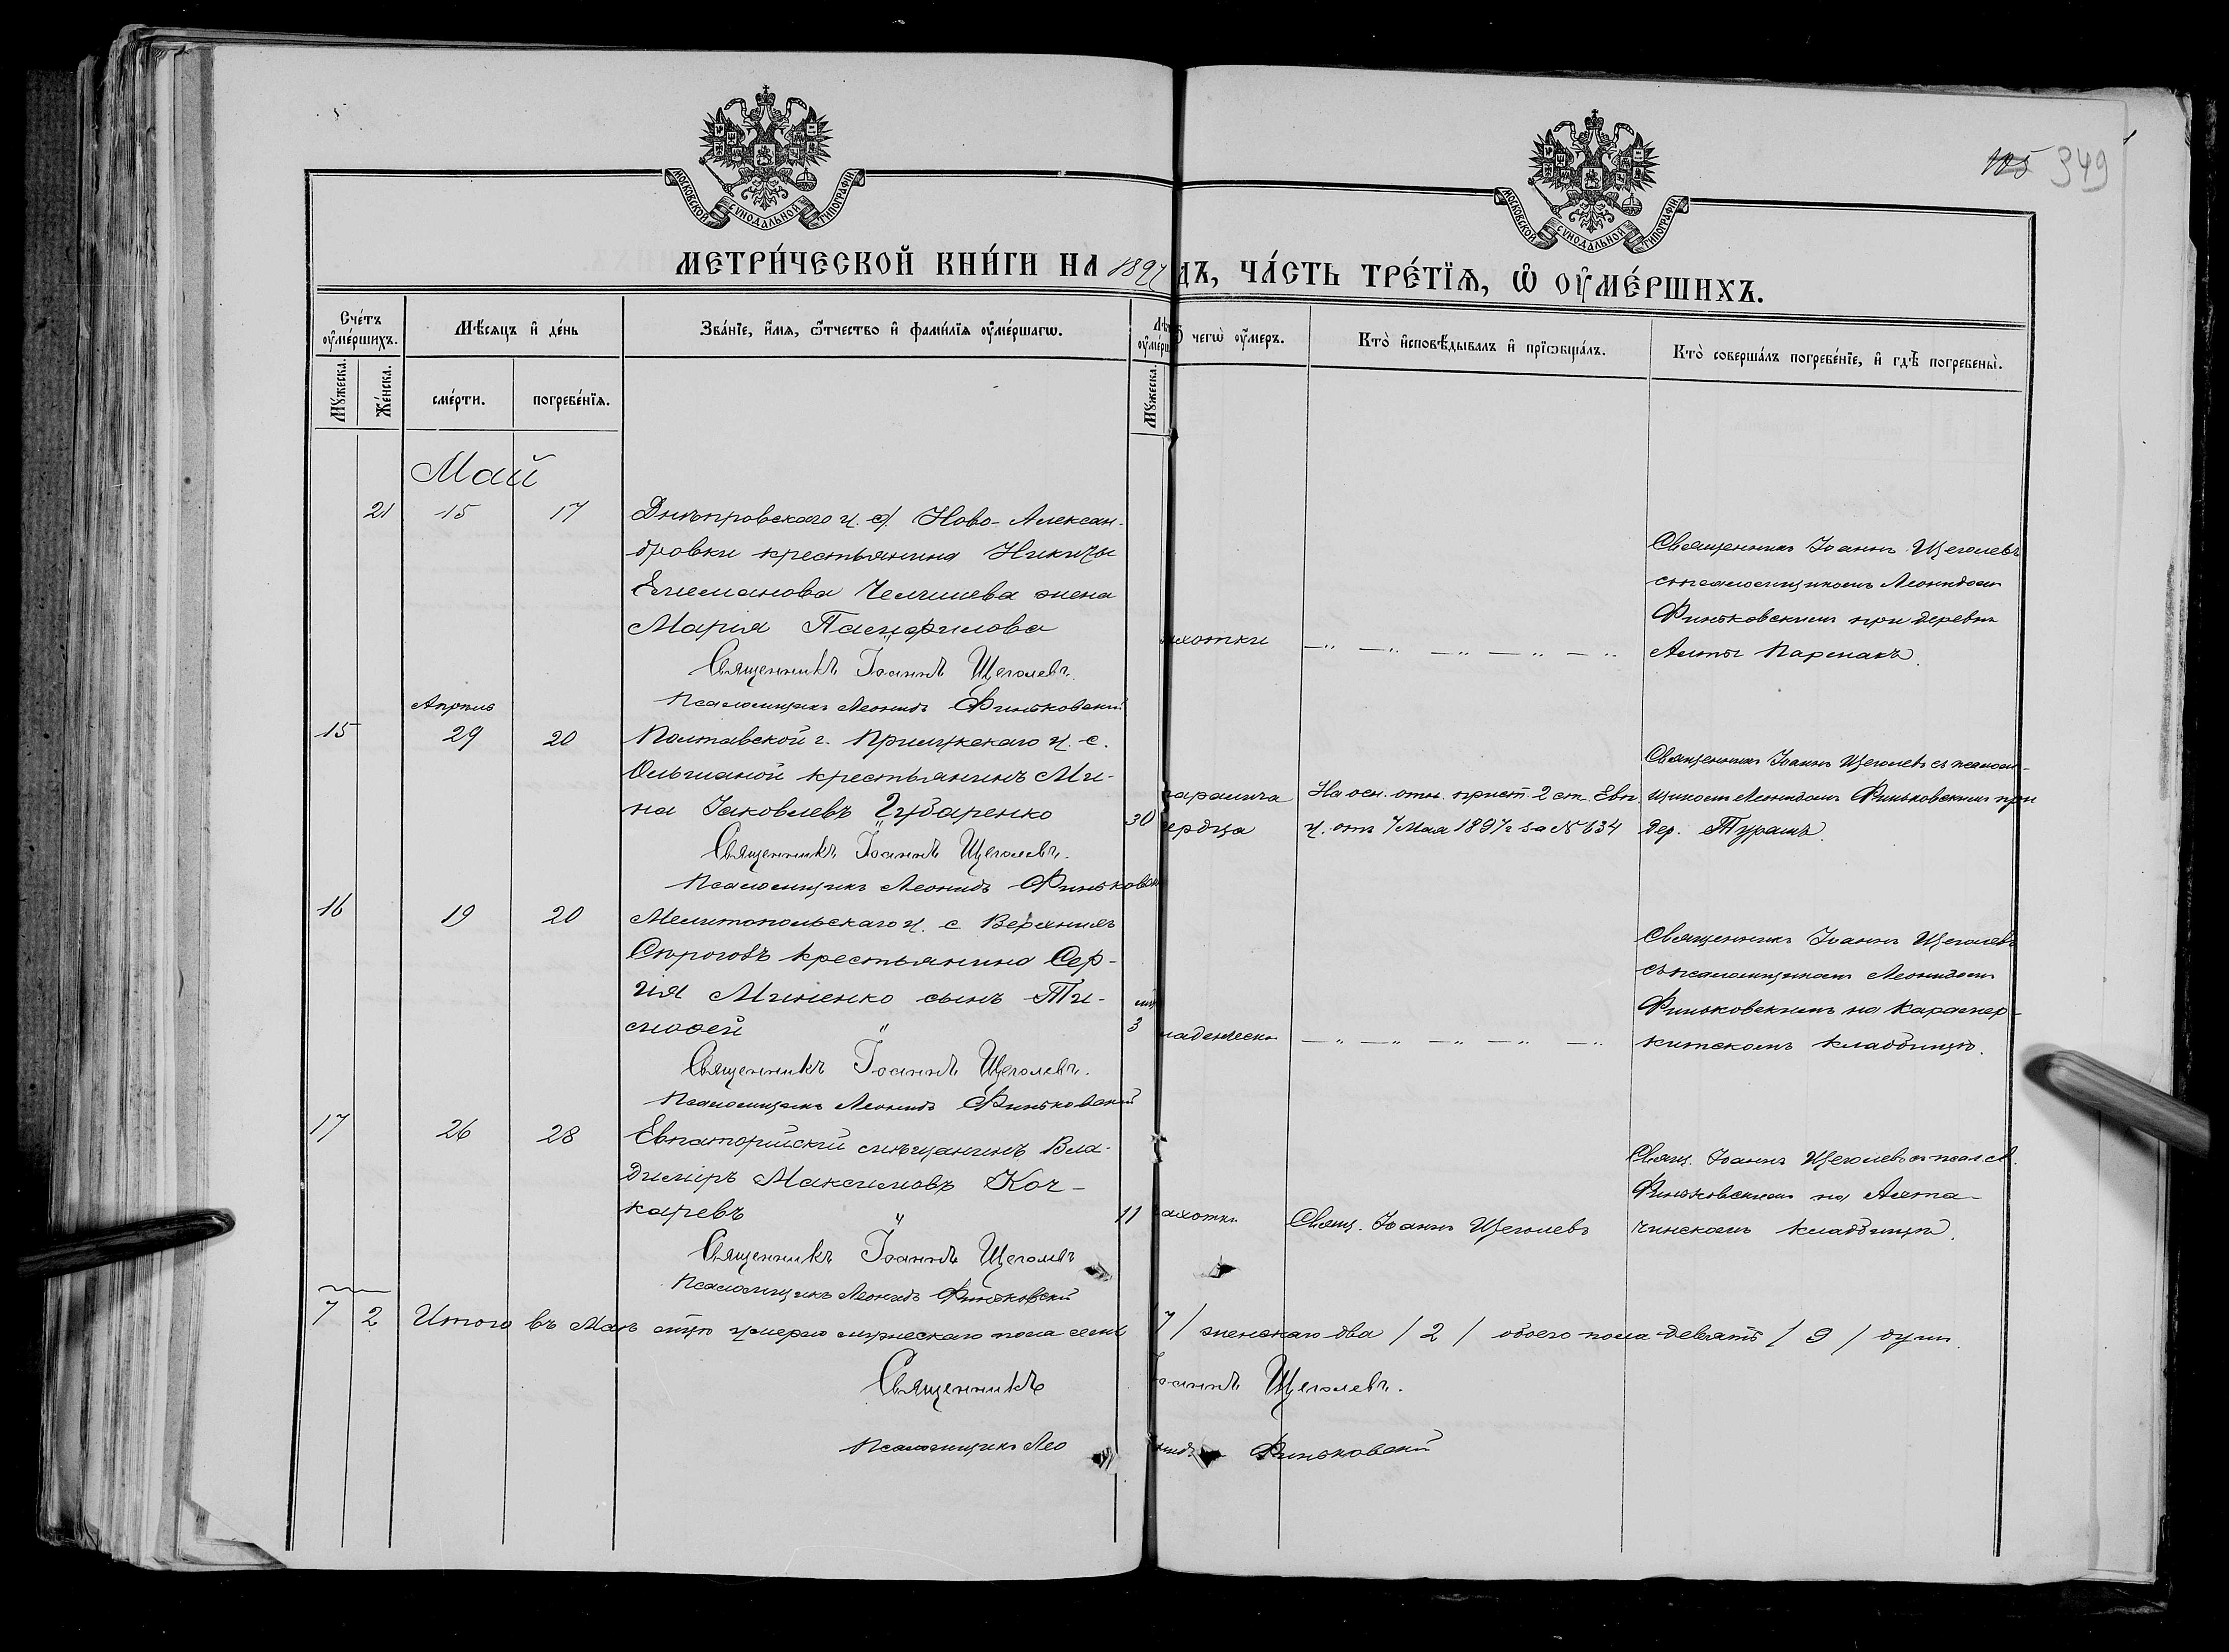 105 349
МОСКОВСКОЙ СѴНОДАЛЬНОЙ ТИПОГРАФІИ
МОСКОВСКОЙ СѴНОДАЛЬНОЙ ТИПОГРАФІИ
МЕТРИ́ЧЕСКОЙ КНИ́ГИ НА 1897
ДЪ, ЧА́СТЬ ТРЕ́ТЇѦ, Ѡ ОУ҆МЕ́РШИХЪ.
Сче́тъ оу҆ме́ршихъ.
Мꙋ́жеска.
Же́нска.
Мѣ́сяцъ и҆ де́нь
сме́рти.
погребе́нїѧ.
Зва́нїе, и҆́мѧ, ѻ҆́тчество и҆ фами́лїѧ оу҆ме́ршагѡ.
Мꙋ́жеска.
чегѡ̀ оу҆́меръ.
Кто̀ и҆сповѣ́дывалъ и҆ прїѡбща́лъ.
Кто̀ соверша́лъ погребе́нїе, и҆ гдѣ̀ погребены̀.
Май
21 15 17 Днѣпровскаго у. с. Ново-Алексан-
дровки крестьянина Никиты
Челышева жена
Мария
Священникъ Іоаннъ Щеголевъ
Псаломщикъ Леонидъ Финьковскій
чахотки
Священникъ Іоаннъ Щеголевъ
съ псаломщикомъ Леонидом
Финьковскимъ при деревнѣ
Алты Пармакъ.
Апрѣль
15 29 20 Полтавской г. Прилукскаго у. с.
Ольшаной крестьянинъ Ми-
на Іаковлевъ Губаренко 30
Священникъ Іоаннъ Щеголевъ.
Псаломщикъ Леонидъ Финьковск
паралича
сердца
На осн. отн. прист. 2 ст. Евп.
у. отъ 7 Мая 1897 г за № 634
Священникъ Іоаннъ Щеголевъ съ псалом-
щикомъ Леонидомъ Финьковскимъ при
дер.
16 19 20 Мелитопольскаго у. с. Верхнихъ
Сѣрогозъ крестьянина Сер-
гія Миненко сынъ Ти-
моѳей 3
Священникъ Іоаннъ Щеголевъ.
Псаломщикъ Леонидъ Финьковскій
Священникъ Іоаннъ Щеголевъ
съ псаломщикомъ Леонидомъ
Финьковскимъ на Карамер-
китскомъ кладбищѣ.
17 26 28 Евпаторійскій мѣщанинъ Вла-
димиръ Максимовъ Коч-
каревъ 11
Священникъ Іоаннъ Щеголевъ
Псаломщикъ Леонидъ Финьковскій
чахотки
Свящ. Іоаннъ Щеголевъ
Свящ. Іоаннъ Щеголевъ съ псалом.
Финьковскимъ на Ахта-
чинскомъ кладбищѣ.
7 2 Итого въ Маѣ м-цѣ умерло мужескаго пола семь /7/ женскаго два /2/ обоего пола девять /9/ душъ.
Священникъ Іоаннъ Щеголевъ.
Псаломщикъ Леонидъ Финьковскій